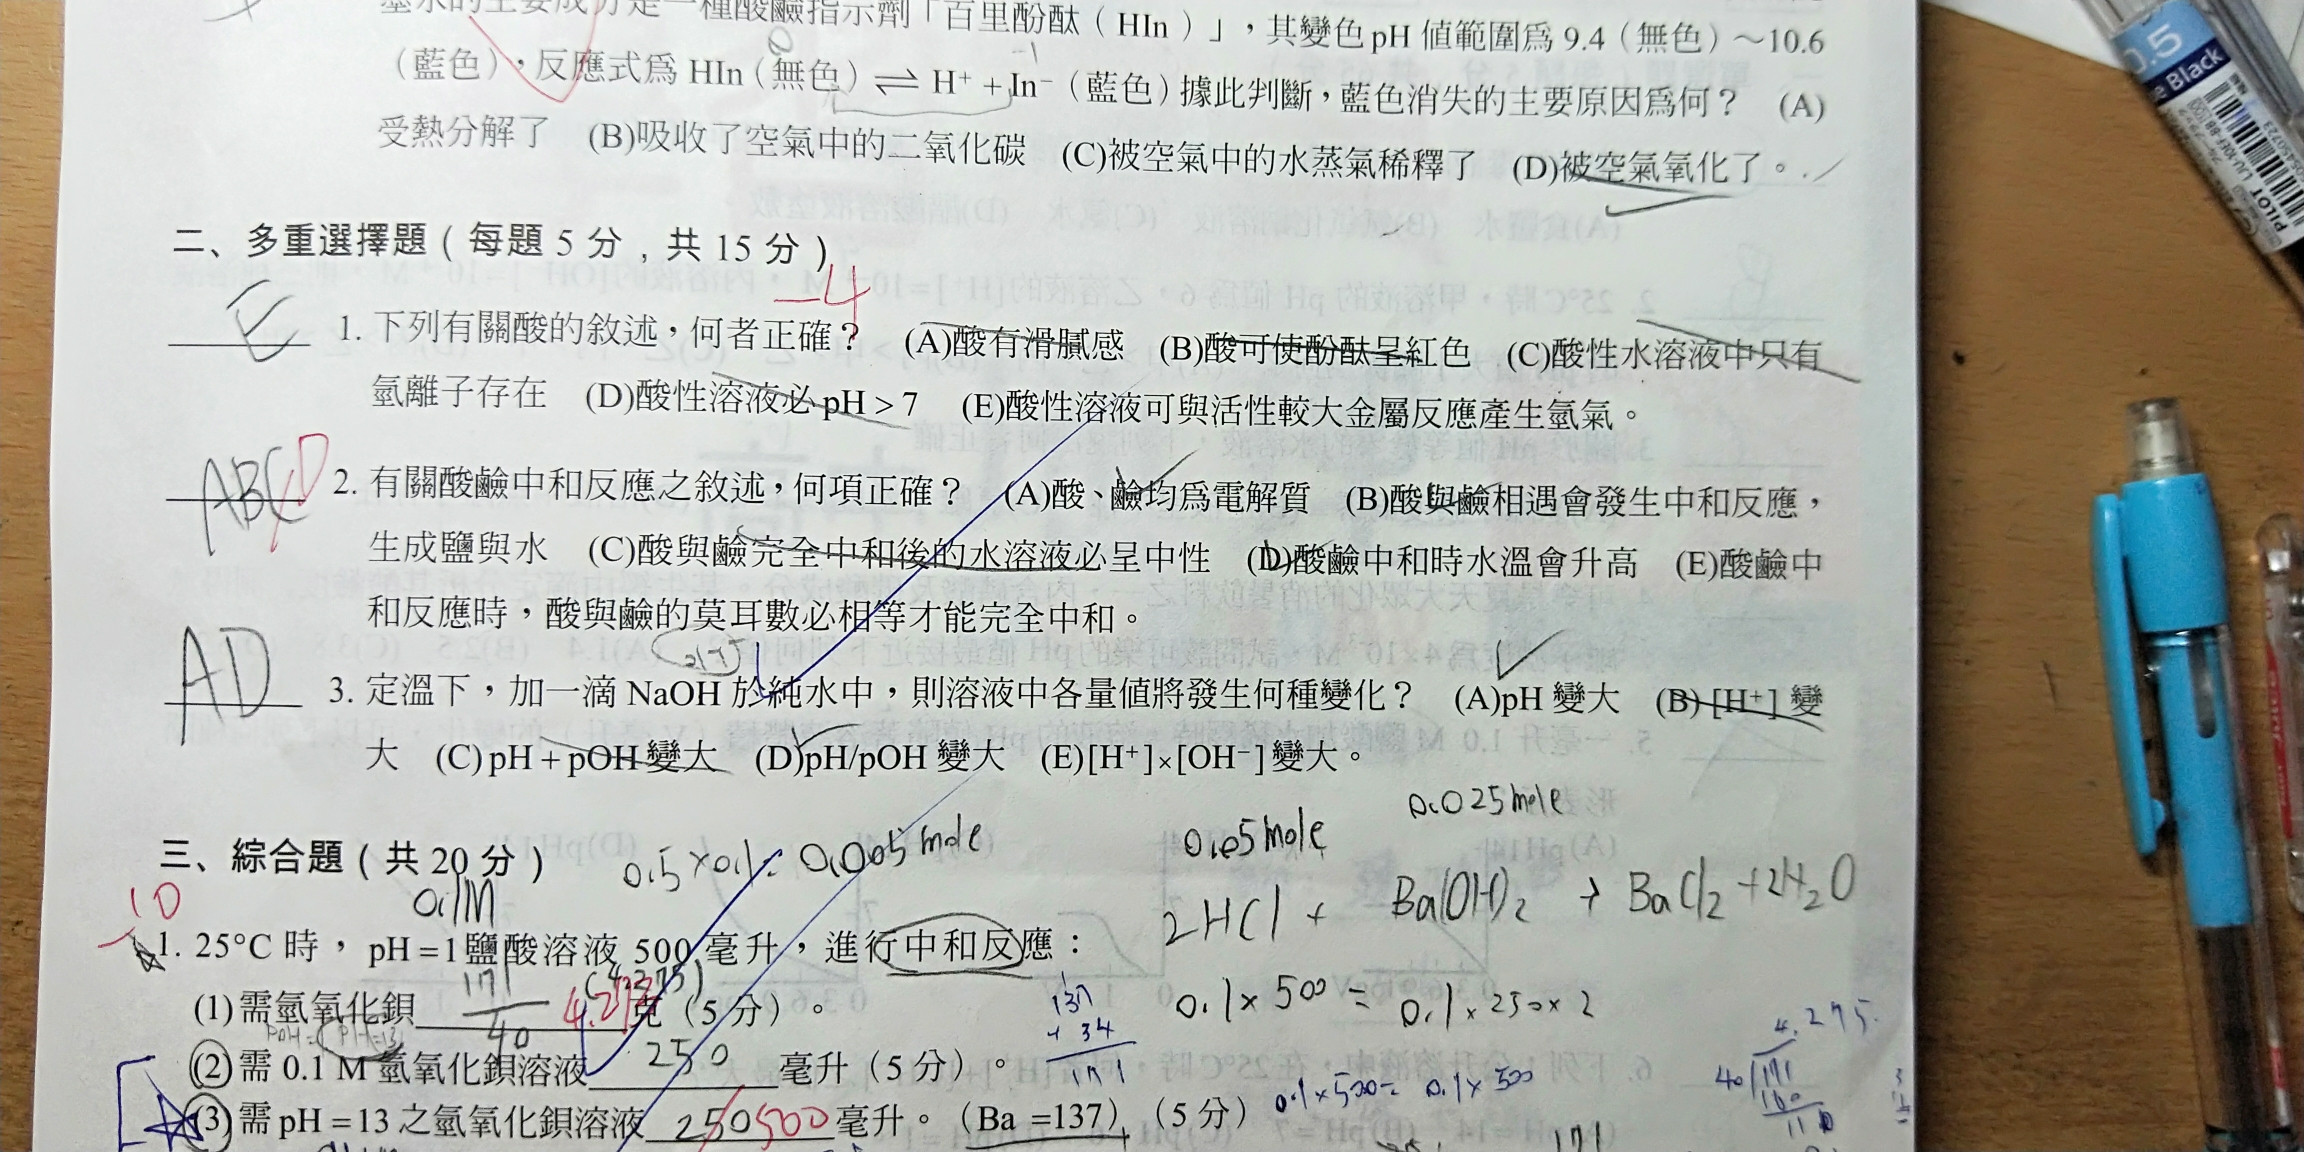 墨水的主要成分是一種酸鹼指示劑「百里酚酞(HIn)」,其變色 pH 值範圍為 9.4(無色)~10.6
(藍色),反應式為 HIn(無色)⇌ H⁺ + In⁻(藍色)據此判斷,藍色消失的主要原因為何? (A)
受熱分解了 (B)吸收了空氣中的二氧化碳 (C)被空氣中的水蒸氣稀釋了 (D)被空氣氧化了。
二、多重選擇題(每題 5 分,共 15 分)
-4
E 1. 下列有關酸的敘述,何者正確? (A)酸有滑膩感 (B)酸可使酚酞呈紅色 (C)酸性水溶液中只有
氫離子存在 (D)酸性溶液必 pH > 7 (E)酸性溶液可與活性較大金屬反應產生氫氣。
ABCD 2. 有關酸鹼中和反應之敘述,何項正確? (A)酸、鹼均為電解質 (B)酸與鹼相遇會發生中和反應,
生成鹽與水 (C)酸與鹼完全中和後的水溶液必呈中性 (D)酸鹼中和時水溫會升高 (E)酸鹼中
和反應時,酸與鹼的莫耳數必相等才能完全中和。
AD 3. 定溫下,加一滴 NaOH 於純水中,則溶液中各量值將發生何種變化? (A)pH 變大 (B) [H⁺] 變
大 (C) pH + pOH 變大 (D)pH/pOH 變大 (E)[H⁺]×[OH⁻] 變大。
0.025 mole
三、綜合題(共 20 分) 0.5×0.1= 0.005 mole 0.05 mole
0.1M 2HCl + Ba(OH)₂ → BaCl₂ + 2H₂O
10
1. 25°C 時,pH = 1 鹽酸溶液 500 毫升,進行中和反應:
(1)需氫氧化鋇 171/40 (4.275) 克(5 分)。 137 + 34 171 0.1 × 500 = 0.1 × 250 × 2
(2)需 0.1 M 氫氧化鋇溶液 250 毫升(5 分)。
(3)需 pH = 13 之氫氧化鋇溶液 250 500 毫升。(Ba = 137)(5 分) 0.1×500= 0.1×500
4.275
40 171
171
PILOT